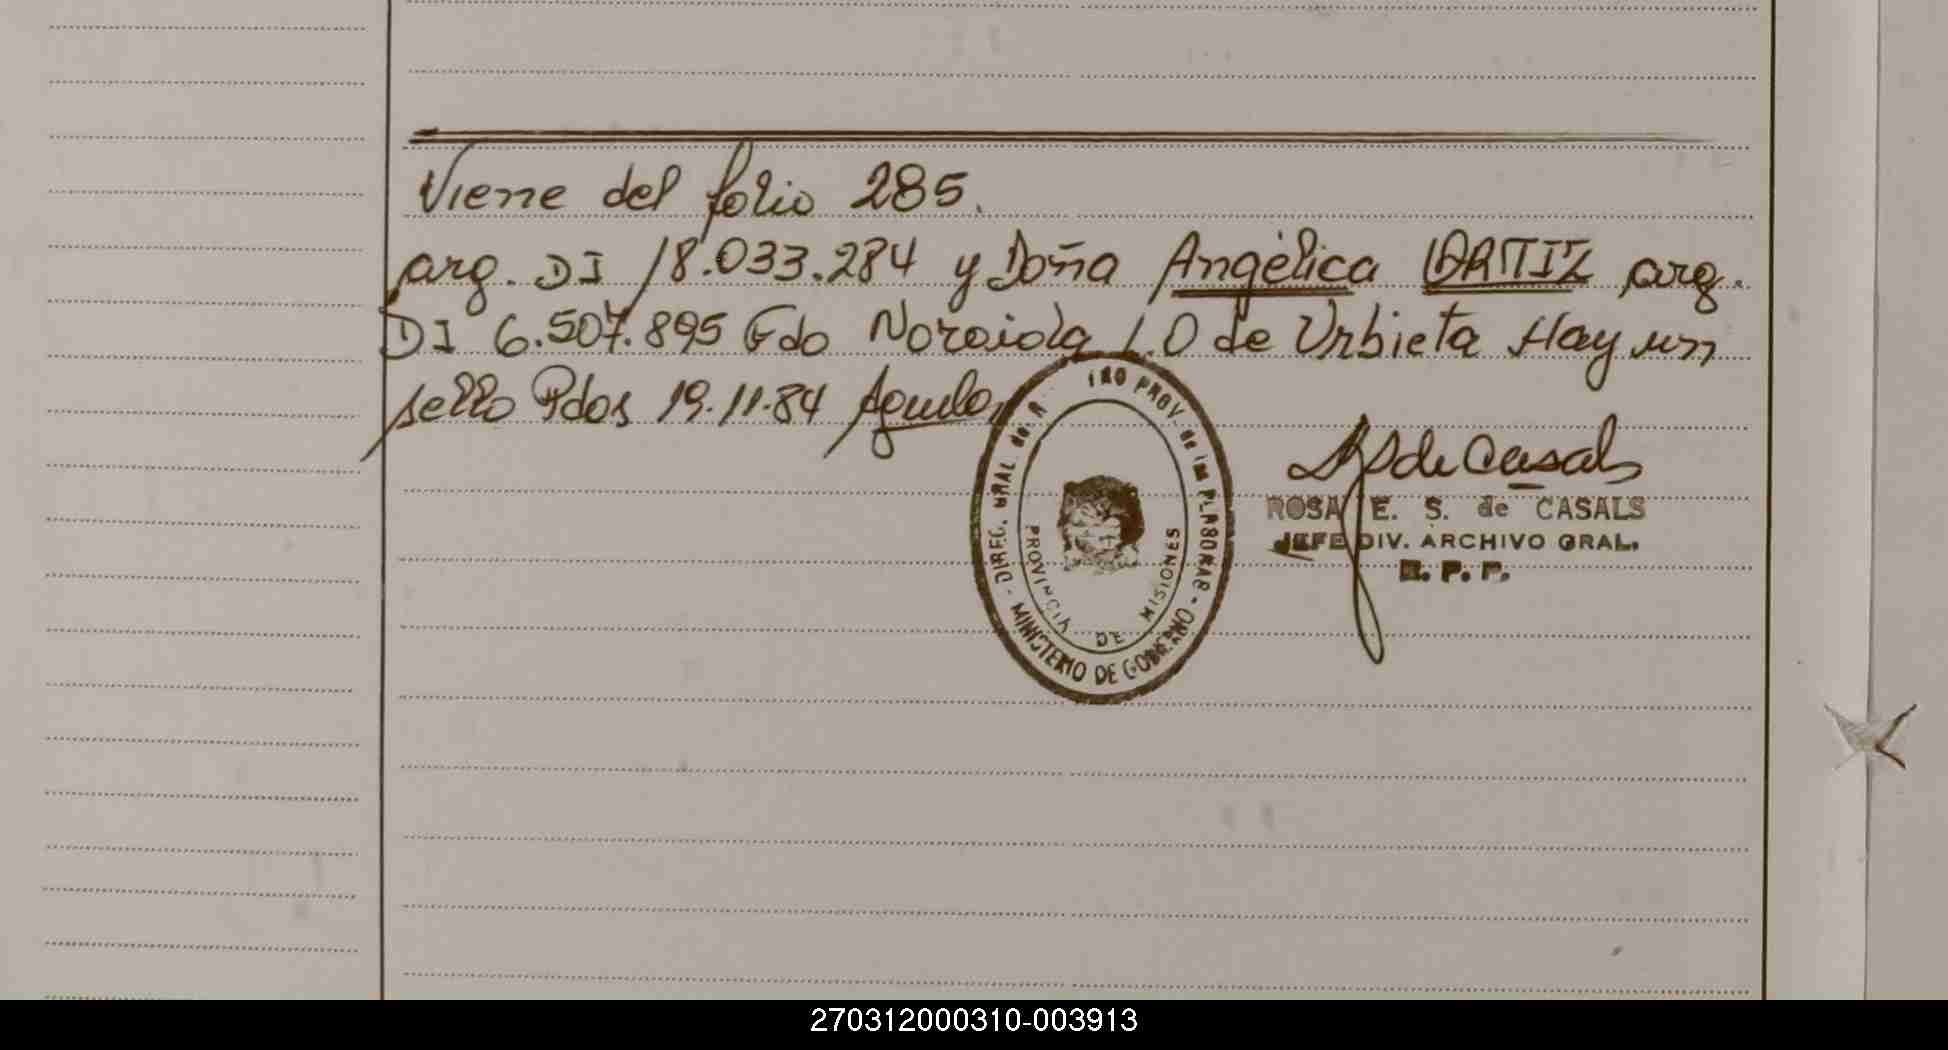 Viene del folio 285.
arg. DI 18.033.284 y Doña Angélica ORTIZ arg.
DI 6.507.895 Fdo I.O de Urbieta Hay un
sello Pdos 19.11.84
DIREC. GRAL de PROV de las PERSONAS - MINISTERIO DE GOBIERNO -
PROVINCIA DE MISIONES
de Casals
ROSA E. S. de CASALS
JEFE DIV. ARCHIVO GRAL.
R. P. P.
270312000310-003913